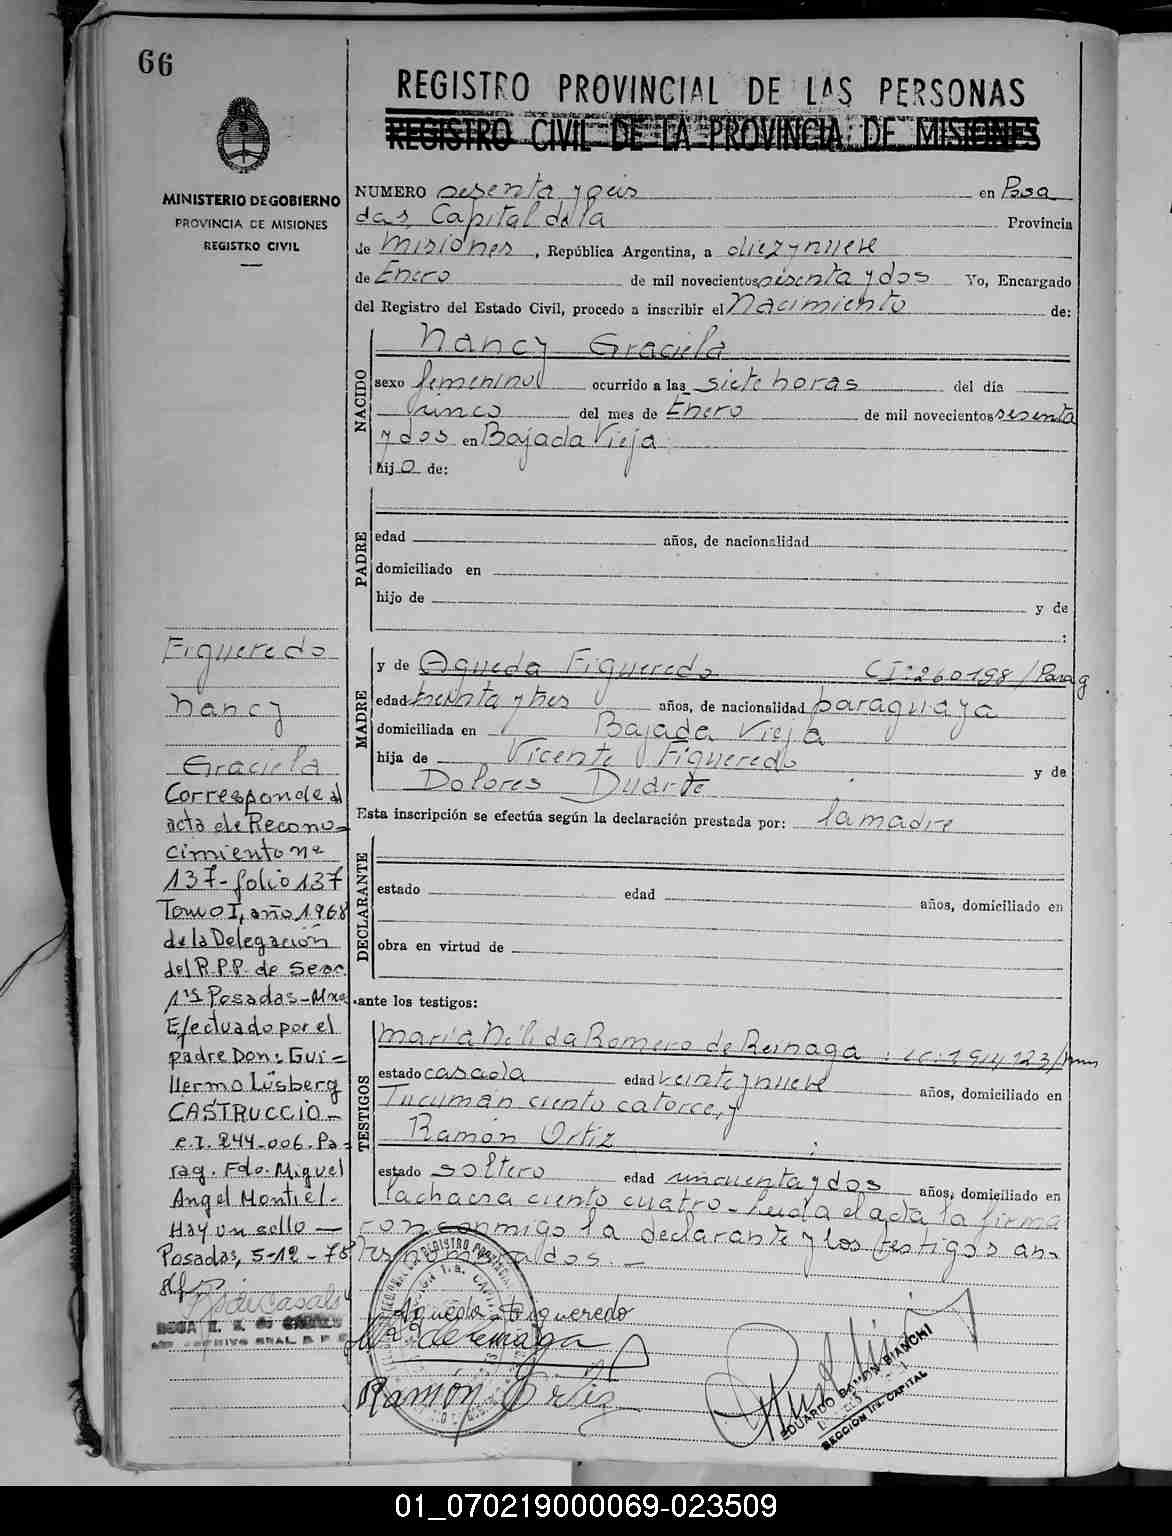 66
REGISTRO PROVINCIAL DE LAS PERSONAS
REGISTRO CIVIL DE LA PROVINCIA DE MISIONES
MINISTERIO DE GOBIERNO
PROVINCIA DE MISIONES
REGISTRO CIVIL
NUMERO sesenta y seis en Posa
das, Capital de la Provincia
de Misiones, República Argentina, a diez y nueve
de Enero de mil novecientos sesenta y dos Yo, Encargado
del Registro del Estado Civil, procedo a inscribir el Nacimiento de:
NACIDO
Nancy Graciela
sexo femenino ocurrido a las siete horas del día
cinco del mes de Enero de mil novecientos sesenta
y dos en Bajada Vieja
hijo de:
PADRE
edad años, de nacionalidad
domiciliado en
hijo de y de
:
MADRE
y de Agueda Figueredo CI:260198/Parag
edad treinta y tres años, de nacionalidad paraguaya
domiciliada en Bajada Vieja
hija de Vicente Figueredo y de
Dolores Duarte
Esta inscripción se efectúa según la declaración prestada por: la madre
DECLARANTE
estado edad años, domiciliado en
obra en virtud de
ante los testigos:
TESTIGOS
Maria Nélida Romero de Reinaga
estado casada edad veinte y nueve años, domiciliado en
Tucumán ciento catorce, y
Ramón Ortiz
estado soltero edad cincuenta y dos años, domiciliado en
la chacra ciento cuatro - Leída el acta la firma
con conmigo la declarante y los testigos an-
tes nombrados.-
Figueredo
Nancy
Graciela
Corresponde al
acta de Recono-
cimiento nº
137-folio 137
Tomo I, año 1968
de la Delegación
del R.P.P. de Secc.
1ra Posadas-Mnes
Efectuado por el
padre Don: Gui-
llermo Lüsberg
CASTRUCCIO-
c.I. 244-006. Pa-
rag. Fdo. Miguel
Angel Montiel-
Hay un sello -
Posadas, 5-12-78
Agueda Figueredo
de Reinaga
Ramón Ortiz
EDUARDO RAMON BIANCHI
SECCION 1ra. CAPITAL
01_070219000069-023509